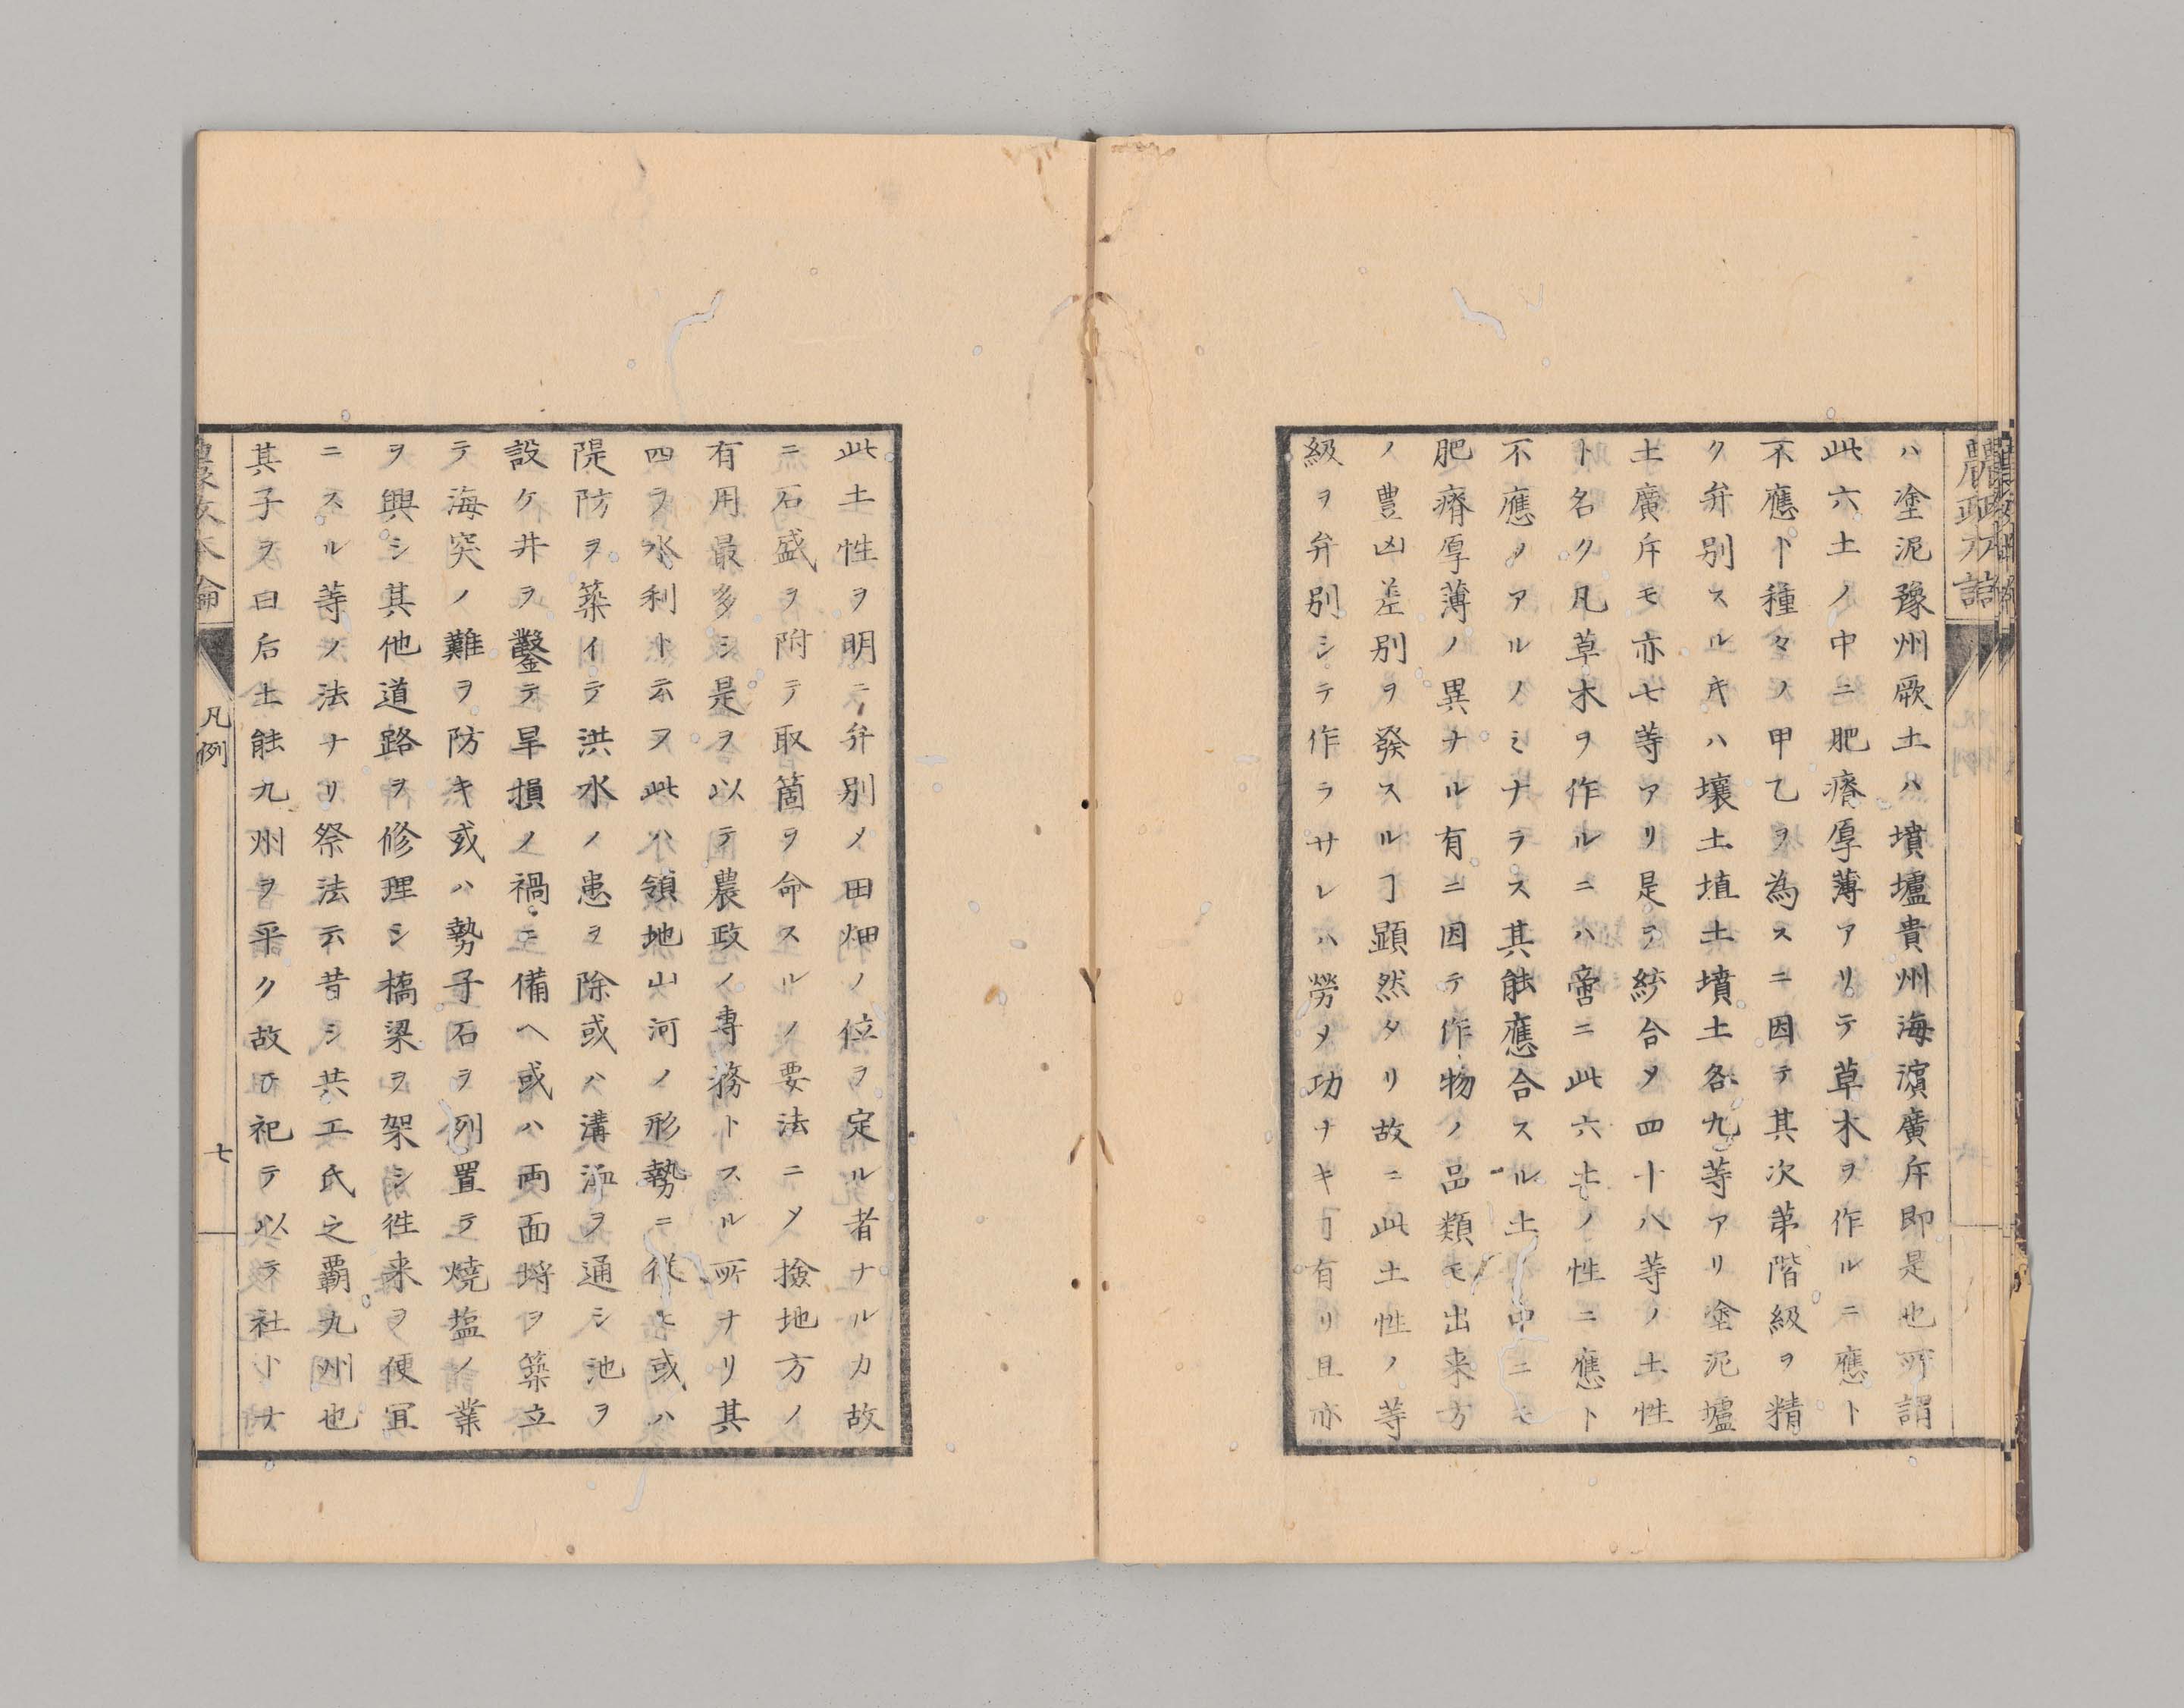 ハ塗泥豫州厥土ハ墳壚貴州海濵廣斥即是也所謂
此六土ノ中ニ肥瘠厚薄アリテ草木ヲ作ルニ應ト
不應ト種々ノ甲乙ヲ為スニ因テ其次第階級ヲ精
ク弁別スル𪜈ハ壤土埴土墳土各九等アリ塗泥壚
土廣斥モ亦七等アリ是ヲ綂合〆四十八等ノ土性
ト名ク凡草木ヲ作ルニハ啻ニ此六土ノ性ニ應ト
不應ノアルノミナラス其能應合スル土中ニモ
肥瘠厚薄ノ異ナル有ニ因テ作物ノ品類モ出来方
ノ豊凶差別ヲ發スルヿ顕然タリ故ニ此土性ノ等
級ヲ弁別シテ作ラサレハ勞〆功ナキヿ有リ且亦
此土性ヲ明ニ弁別〆田畑ノ位ヲ定ル者ナルカ故
ニ石盛ヲ附テ取箇ヲ命スルノ要法ニ〆撿地方ノ
有用最多シ是ヲ以テ農政ノ専務トスル所ナリ其
四ヲ水利ト云ヲ此ハ領地山河ノ形勢ニ従ヒ或ハ
隄防ヲ築イテ洪水ノ患ヲ除或ハ溝洫ヲ通シ池ヲ
設ケ井ヲ鑿テ旱損ノ禍ニ備ヘ或ハ両面埒ヲ築立
テ海突ノ難ヲ防キ或ハ勢子石ヲ列置テ燒塩ノ業
ヲ興シ其他道路ヲ修理シ橋梁ヲ架シ徃来ヲ便冝
ニスル等ノ法ナリ祭法云昔シ共工氏之覇九州也
其子ヲ曰后土能九州ヲ平ク故ニ祀テ以テ社トナ
農政本論
凡例
七